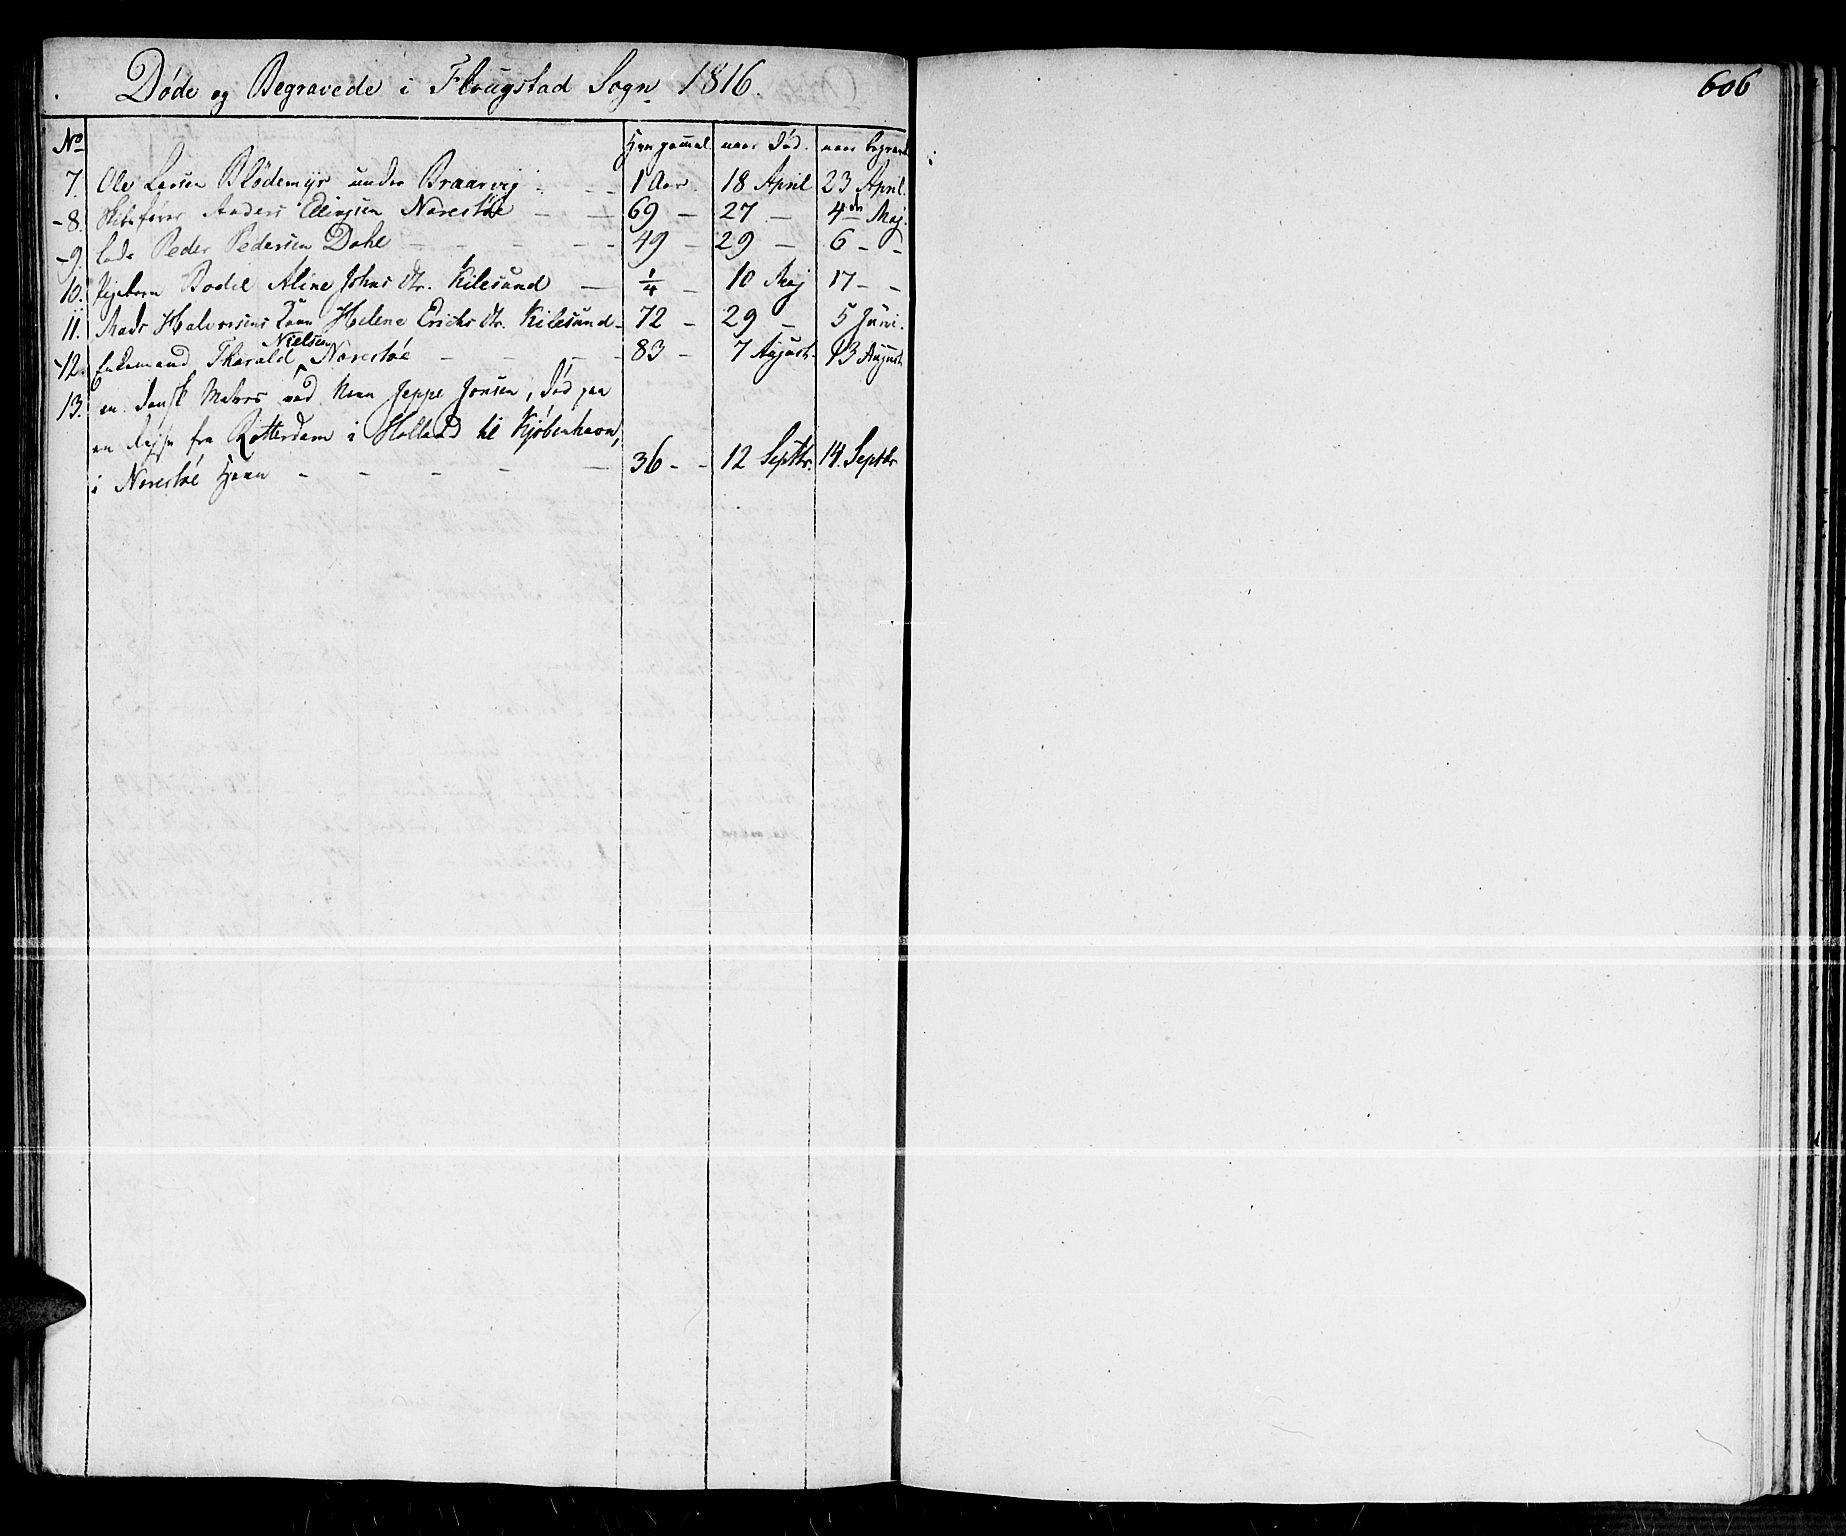 Døde og Begravede i Flougstad Sogn 1816.
606
No
Hvor gammel naar Død. naar begravet
7. Ole Larsen Blødemyr under Braarvig - - - 1 Aar 18 April 23 April.
8. Skibsfører Anders Ellingsen Narestøe - - 69 - 27 - 4de Maj.
9. Lods Peder Pedersen Dahl - - - - - 49 - 29 - 6 - -
10. Pigebarn Bodel Aline Johns dtr. Kilesund - 1/4 - 10 Maj 17 - -
11. Mads Halvorsens Kone Helene Erichs dtr. Kilesund - 72 - 29 - 5 Juni.
12. Enkemand Tharald Nielsen Narestøe - - - - 83 - 7 August. 13 August
13. en dansk Matros ved Navn Jeppe Jonsen, død paa
en Rejse fra Rotterdam i Holland til Kjøbenhavn,
i Narestøe Havn - - - - - 36 - - 12 Septbr. 14. Septbr